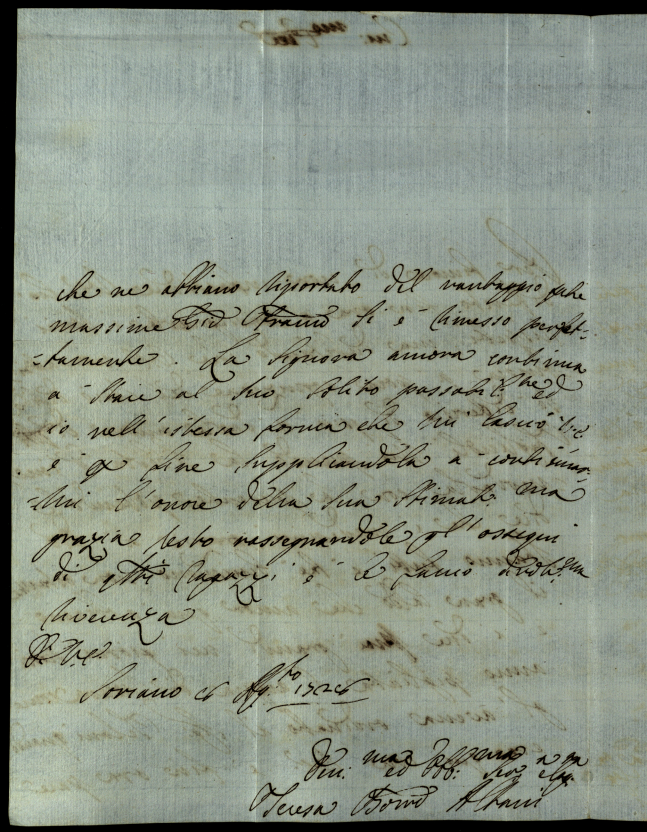 che ne abbiano riportato del vantaggio
massime si è rimesso perfet-
-tamente. La Signora ancora continua
a stare al suo solito passabil.te ed
io nell'istessa forma che mi lasciò V.E.
e q fine supplicandola a continuar-
-mi l'onore della sua stimat.ma
grazia resto rassegnandole gl'ossequi
di q.ti ragazzi e le faccio
riverenza
Di V.E.
Soriano 26 Ag.to 1726
Dev.ma ed Obb.ma
Teresa Borro Albani